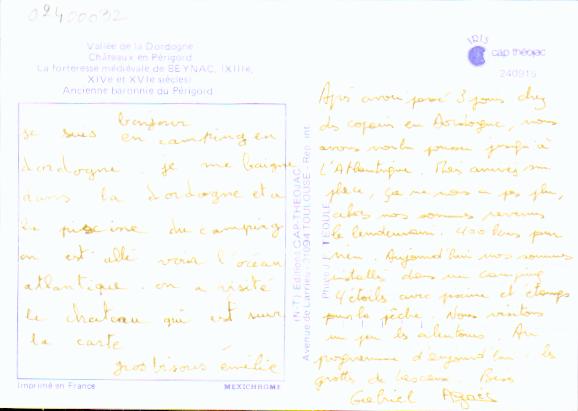 02400032
Vallée de la Dordogne
Châteaux en Périgord
La forteresse médiévale de BEYNAC, (XIIIe,
XIVe et XVIe siècles)
Ancienne baronnie du Périgord
bonjour
je suis en camping en
dordogne. je me baigne
dans la dordogne et a
la piscine du camping
on est allé voir l'océan
atlantique. on a visité
le chateau qui est sur
la carte
gros bisous émilie
Imprimé en France
MEXICHROME
(N.T.) Editions CAP-THEOJAC
Avenue de Larrieu - 31094 TOULOUSE - Rep. int.
IRIS
cap théojac
240915
Après avoir passé 3 jours chez
des copains en Dordogne, nous
avons voulu pousser jusqu'à
l'Atlantique. Mais arrivés sur
place, ça ne nous a pas plu,
alors nous sommes revenus
le lendemain. 400 kms pour
rien. Aujourd'hui nous sommes
installés dans un camping
4 étoiles avec piscine et étangs
pour la pêche. Nous visitons
un peu les alentours. Au
programme d'aujourd'hui : les
grottes de Lascaux. Bises
Gabriel Agnès